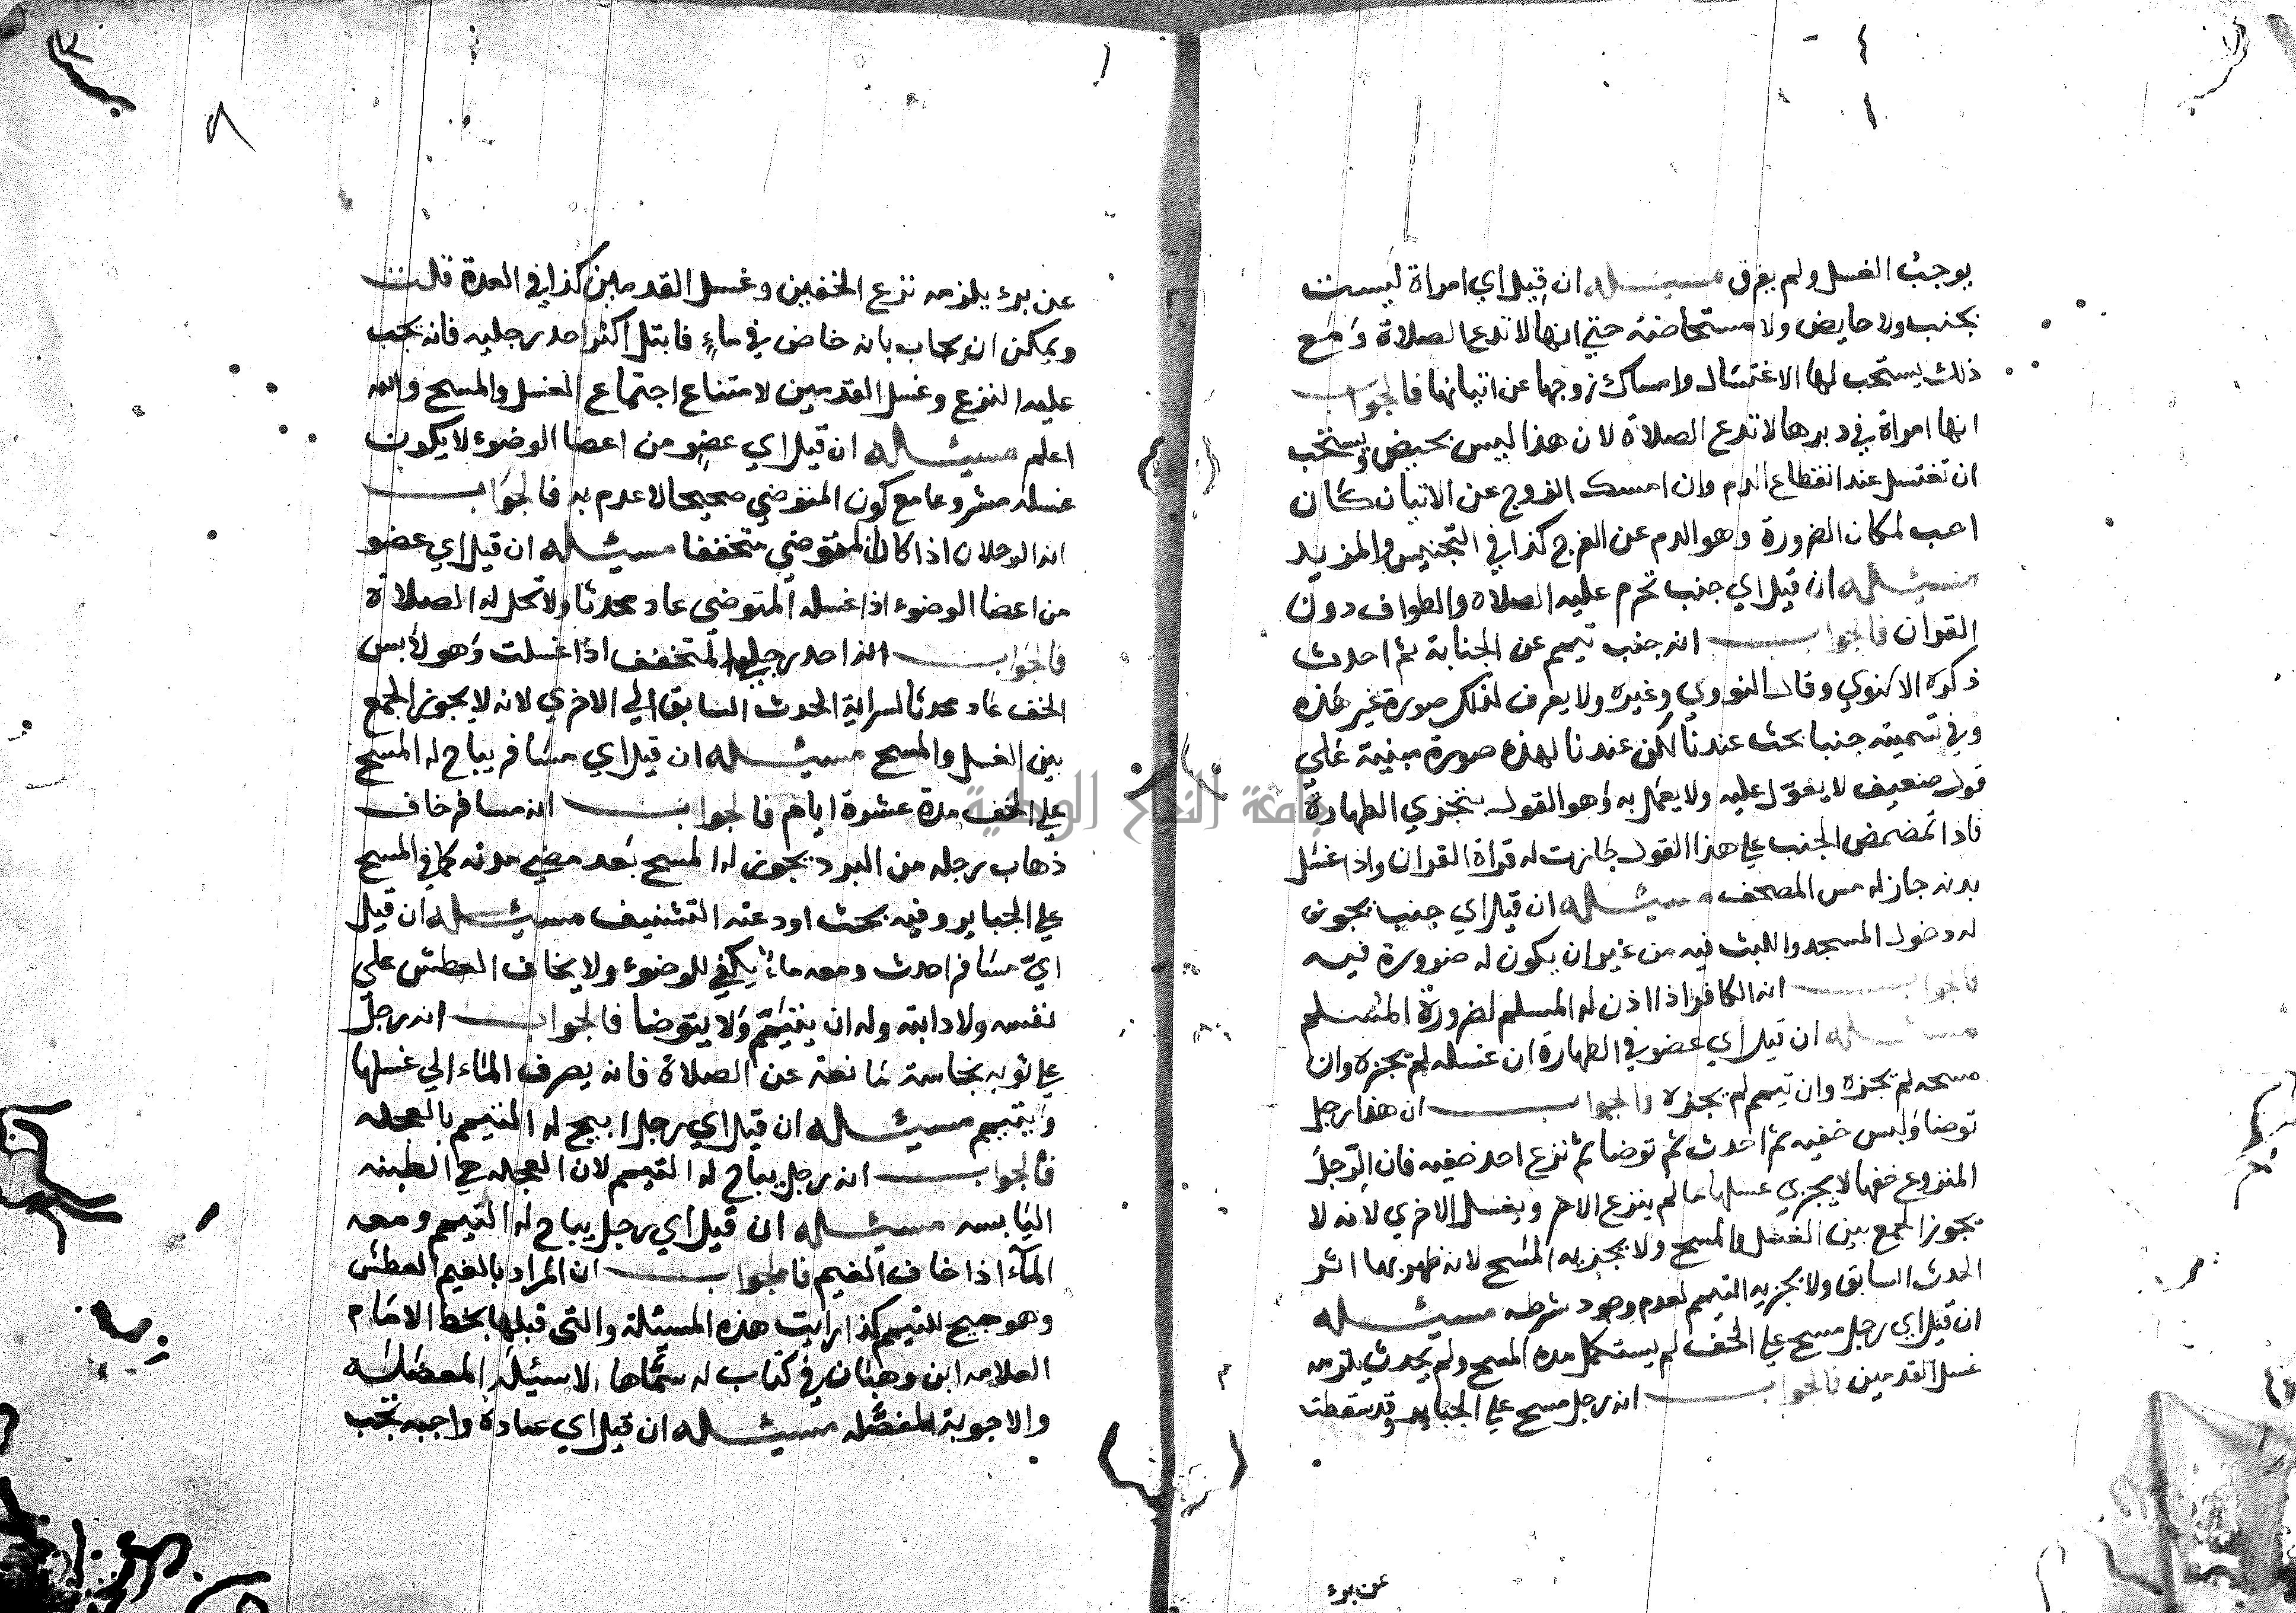 يوجب الغسل ولم يفرق مسئله ان قيل اي امراة ليست
بجنب ولا حايض ولا مستحاضة حتي انها لا تدع الصلاة ومع
ذلك يستحب لها الاغتسال وامساك زوجها عن اتيانها فالجواب
انها امراة في دبرها لا تدع الصلاة لان هذا ليس بحيض ويستحب
ان تغتسل عند انقطاع الدم وان امسك الزوج عن الاتيان كان
احب لمكان الضرورة وهو الدم عن الفرج كذا في التجنيس والمزيد
مسئله ان قيل اي جنب تحرم عليه الصلاة والطواف دون
القران فالجواب انه جنب تيمم عن الجنابة ثم احدث
ذكره الاسنوي وقال النووي وغيره ولا يعرف لذلك صورة غير هذه
وفي تسميته جنبا بحث عندنا لكن عندنا لهذه صورة مبنية علي
قول ضعيف لا يعول عليه ولا يعمل به وهو القول بتجزي الطهارة
فاذا تمضمض الجنب علي هذا القول جازت له قراة القران واذا غسل
بدنه جاز له مس المصحف مسئله ان قيل اي جنب يجوز
له دخول المسجد واللبث فيه من غير ان يكون له ضرورة فيه
فالجواب انه الكافر اذا اذن له المسلم لضرورة المسلم
مسئله ان قيل اي عضو في الطهارة ان غسله لم يجزه وان
مسحه لم يجزه وان تيمم لم يجزه فالجواب ان هذا رجل
توضا ولبس خفيه ثم احدث ثم توضا ثم نزع احد خفيه فان الرجل
المنزوع خفها لا يجزي غسلها ما لم ينزع الاخر ويغسل الاخري لانه لا
يجوز الجمع بين الغسل والمسح ولا يجزيه المسح لانه ظهر بها اثر
الحدث السابق ولا يجزيه التيمم لعدم وجود شرطه مسئله
ان قيل اي رجل مسح علي الخف لم يستكمل مدة المسح ولم يحدث يلزمه
غسل القدمين فالجواب انه رجل مسح علي الجباير وقد سقطت
عن برء
عن برء يلزمه نزع الخفين وغسل القدمين كذا في العدة قلت
ويمكن ان يجاب بانه خاض في ماء فابتل اكثر احد رجليه فانه يجب
عليه النزع وغسل القدمين لامتناع اجتماع الغسل والمسح والله
اعلم مسئله ان قيل اي عضو من اعضا الوضوء لا يكون
غسله مشروعا مع كون المتوضي صحيحا لا عدم به فالجواب
انه الرجلان اذا كان المتوضي متخففا مسئله ان قيل اي عضو
من اعضا الوضوء اذا غسله المتوضي عاد محدثا ولا تحل له الصلاة
فالجواب انه احد رجلي المتخفف اذا غسلت وهو لابس
الخف عاد محدثا لسراية الحدث السابق الي الاخري لانه لا يجوز الجمع
بين الغسل والمسح مسئله ان قيل اي مسافر يباح له المسح
علي الخف مدة عشرة ايام فالجواب انه مسافر خاف
ذهاب رجله من البرد يجوز له المسح بعد مضي مدته كما في المسح
علي الجباير وفيه بحث اودعته التشنيف مسئله ان قيل
اي مسافر احدث ومعه ماء يكفي للوضوء ولا يخاف العطش علي
نفسه ولا دابته وله ان يتيمم ولا يتوضا فالجواب انه رجل
علي ثوبه نجاسة مانعة عن الصلاة فانه يصرف الماء الي غسلها
ويتيمم مسئله ان قيل اي رجل ابيح له التيمم بالعجله
فالجواب انه رجل يباح له التيمم لان العجله هي الطينه
اليابسه مسئله ان قيل اي رجل يباح له التيمم ومعه
الماء اذا خاف الغيم فالجواب ان المراد بالغيم العطش
وهو مبيح للتيمم كذا رايت هذه المسئلة والتي قبلها بخط الامام
العلامه ابن وهبان في كتاب له سماها الاسئلة المعضلة
والاجوبة المفصله مسئله ان قيل اي عبادة واجبه تجب
جامعة النجاح الوطنية